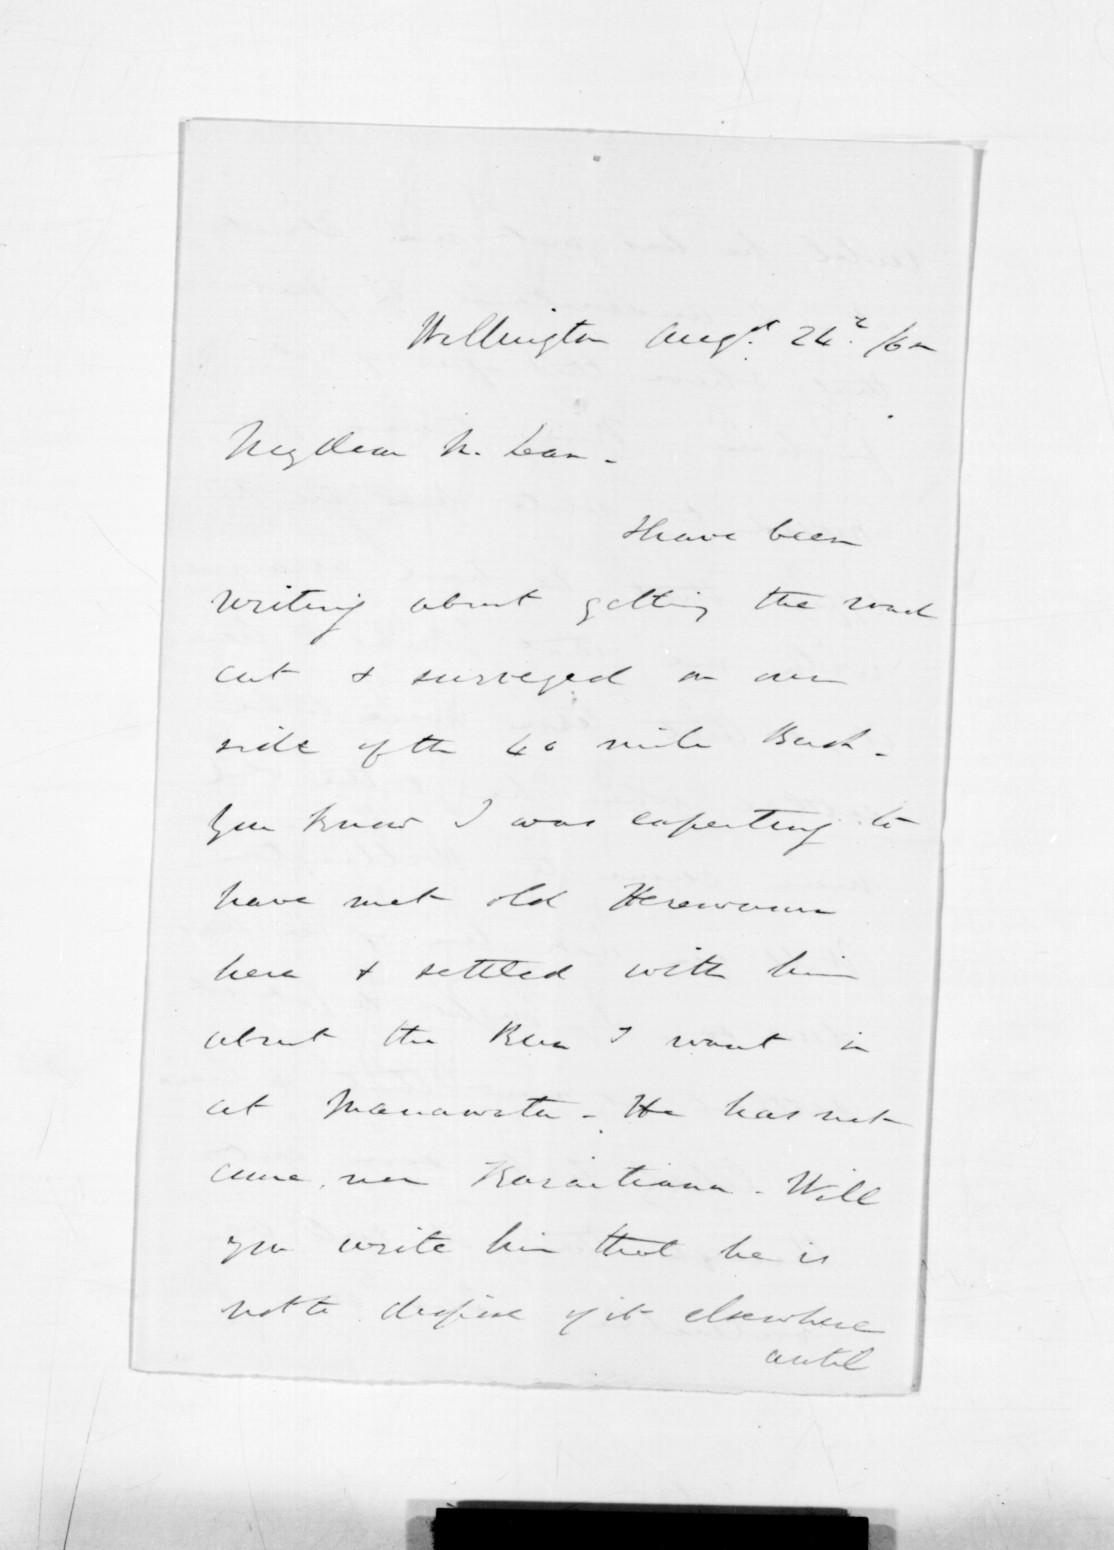 Wellington Augst. 24th. /60
My dear McLean -
I have been
writing about getting the road
cut & surveyed on our
side of the 40 mile Bush -
You know I was expecting to
have met old Herewaru
here & settled with him
about the Run I want in
at Manawatu - He has not
come, nor Karaitiana - Will
you write him that he is
not to dispose of it elsewhere
until